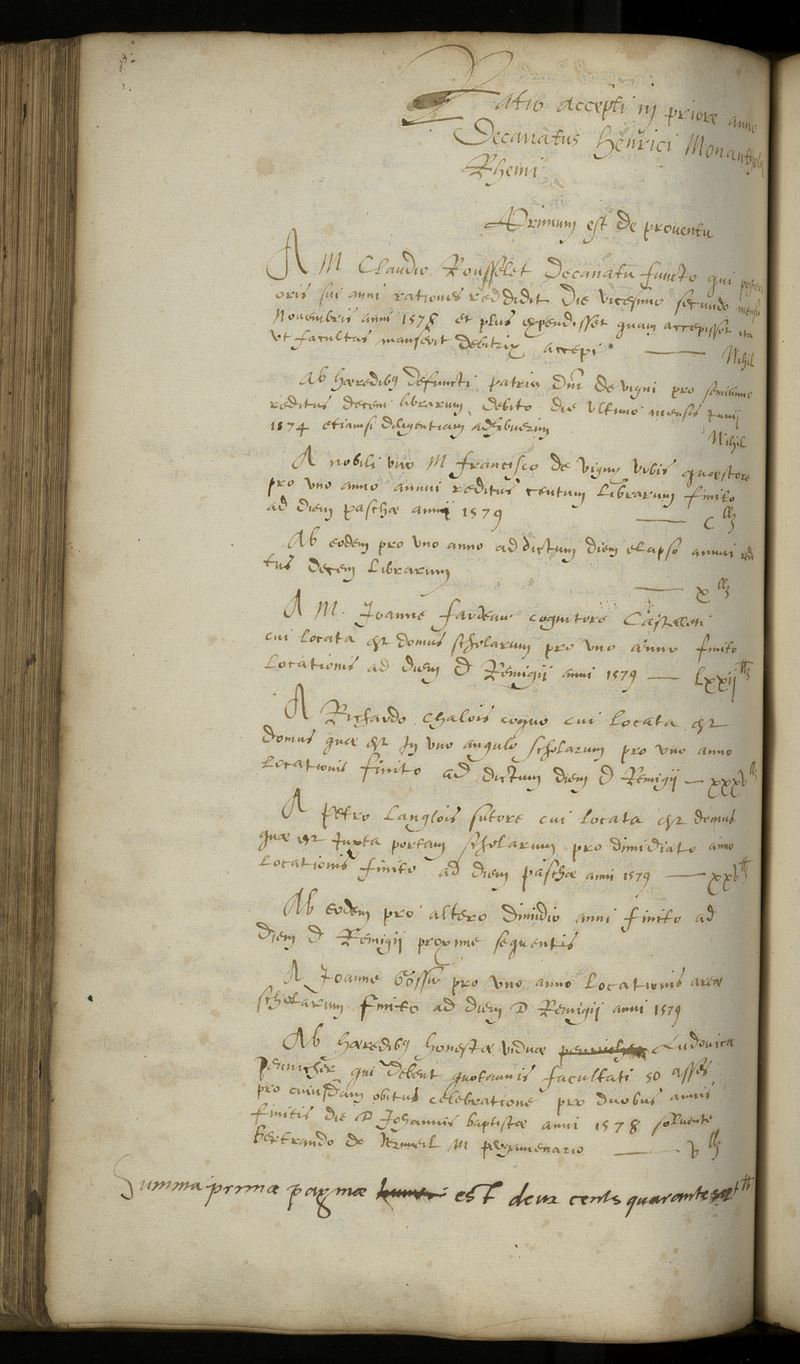 Ratio accepti in priore anno
Decanatus Henrici Monantholii
Rhemi
Primum est de proventu
A M Claudio Rousselet Decanatu functo qui
oris sui anni rationes reddidit die vicesimo secundo mensis
Novembris anni 1578 et plus expendisset quam accepisset ita
vt facultas manserit debitrix accepi Nihil
Ab hæredibus defuncti patris Dni de vigni pro
reditus decem librarum debito die vltimo mensis Junij
1574 etiamsi diligentiam adhibuerim Nihil
A nobili viro M francisco de vigny vrbis quæstore
pro vno anno annui reditus centum librarum finito
ad diem paschæ anni 1579 C ll
Ab eodem pro vno anno ad dictum diem elapso annui redi
tus decem librarum x ll
A M. Joanne cognitore Castelleti
cui locata est domus scholarum pro vno anno finito
locationis ad diem D Remigii anni 1579 lxxij tt
A Richardo Chalois coquo cui locata est
domus quæ est in vno angulo scholarum pro vno anno
locationis finito ad dictum diem D Remigij xxxv ll
A Petro Langlois sutore cui locata est domus
quæ est Juxta portam scholarum pro dimidiato anno
locationis finito ad diem paschæ anni 1579 xxv tt
Ab eodem pro altero dimidio anni finito ad
diem D Remigij proxime sequentis
A Joanne pro vno anno locationis areæ
scholarum finito ad diem D Remigij anni 1579
Ab hæredibus honestæ viduæ Ludovicæ
Pennicher qui debent quotannis facultati 50 asses
pro cuiusdam obitus celebratione pro duobus annis
finitis die D Johannis baptistæ anni 1578 solvente
Bertrando de M pergamenario v ll
Summa primæ paginæ est deux cents quarante